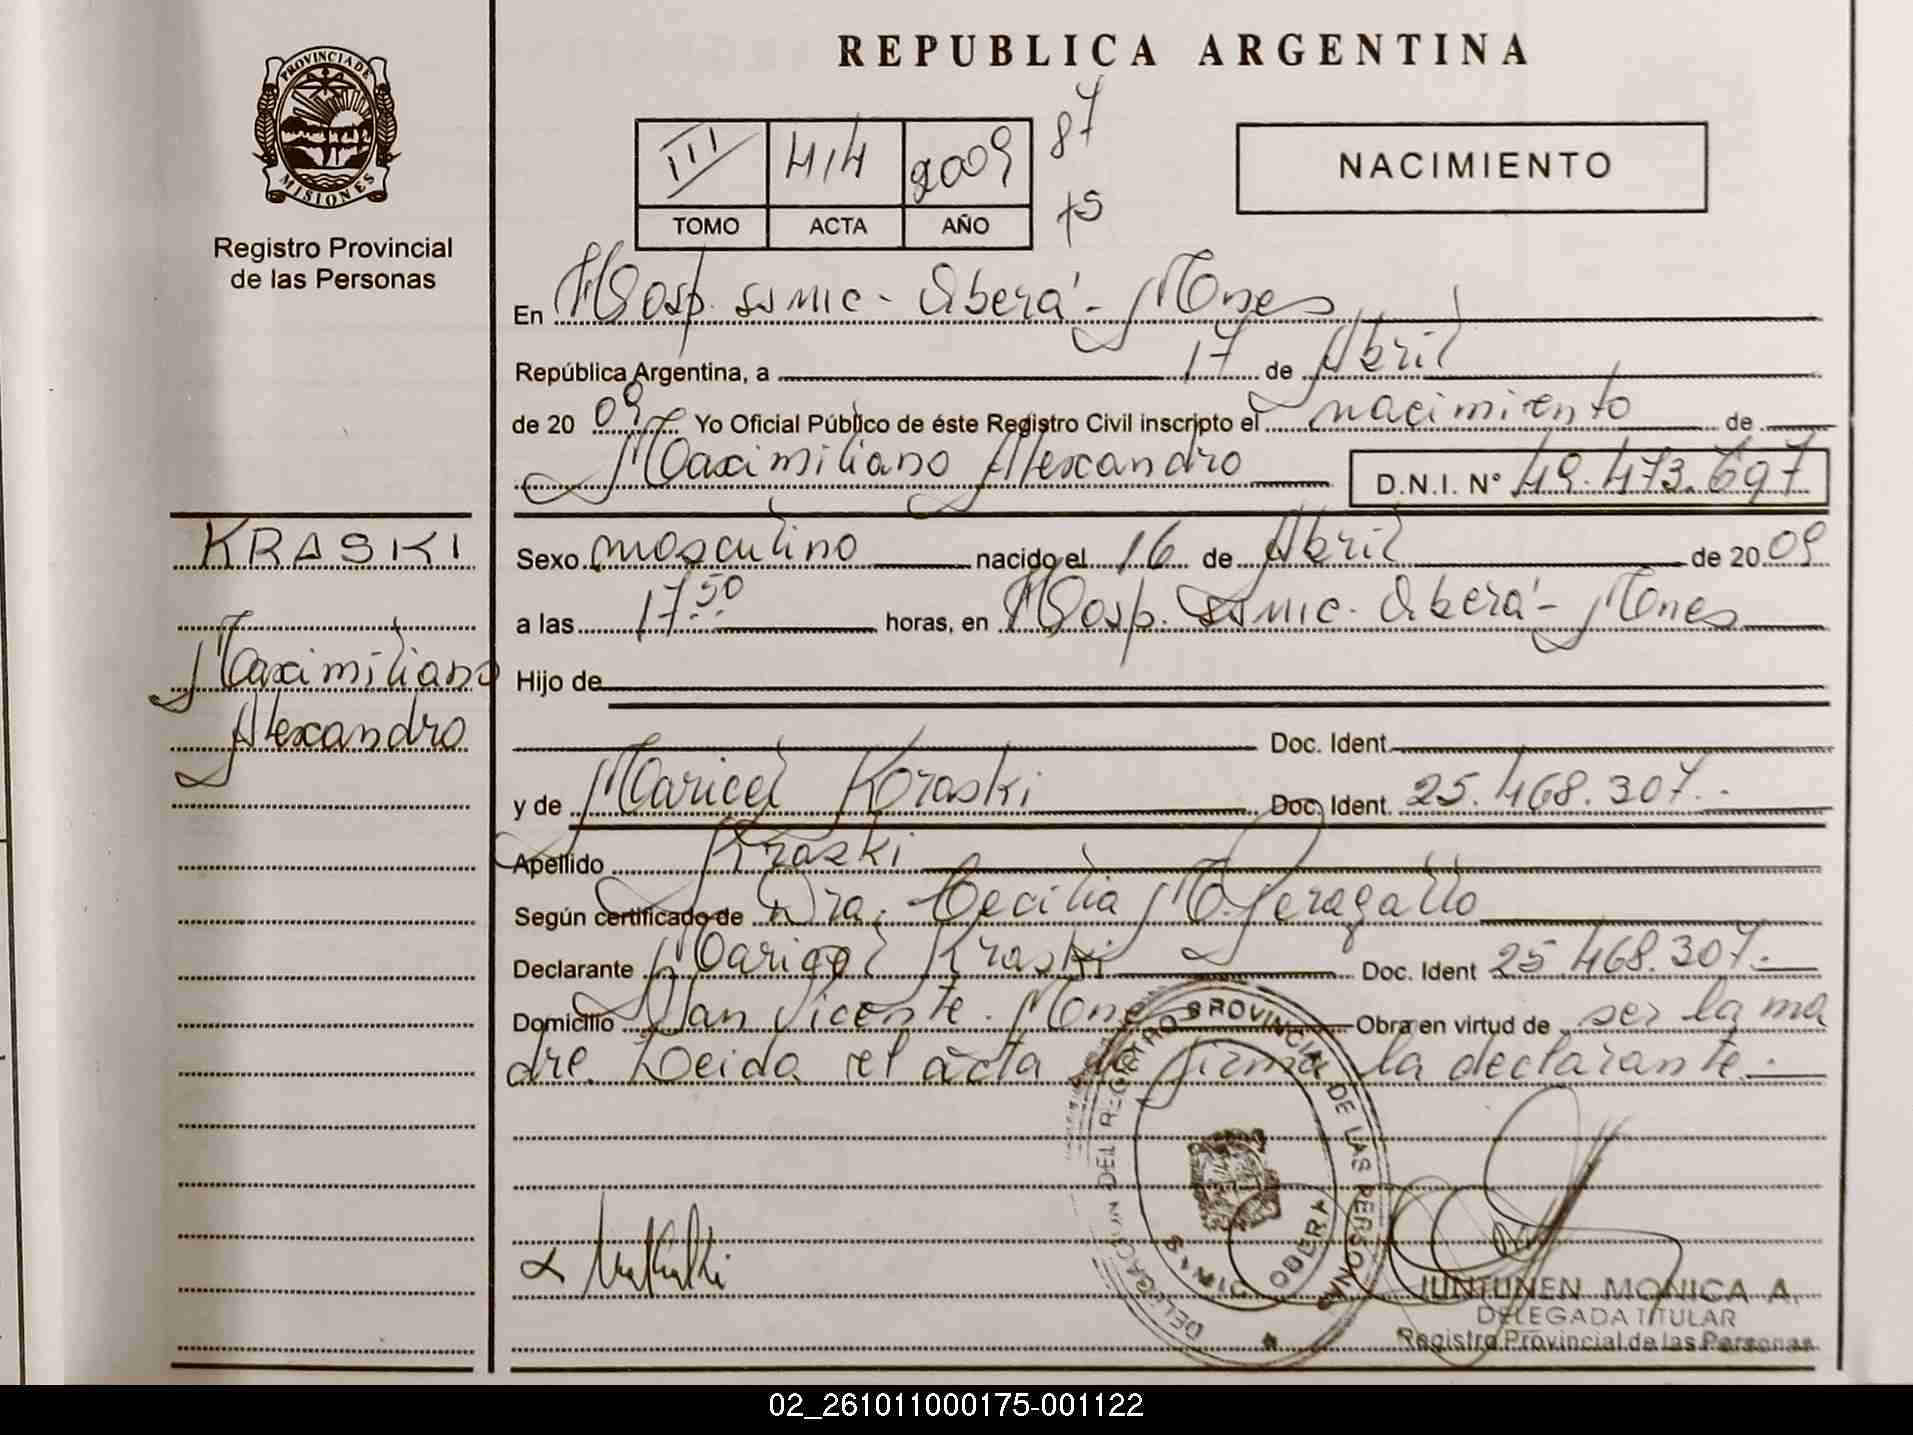 REPUBLICA ARGENTINA
PROVINCIA DE
MISIONES
Registro Provincial
de las Personas
III 414 2009 87
TOMO ACTA AÑO 75
NACIMIENTO
En Hosp. SSMIC - Oberá - Mnes
República Argentina, a 17 de Abril
de 2009 Yo Oficial Público de éste Registro Civil inscripto el nacimiento de
Maximiliano Alexandro D.N.I. N° 49.473.697
KRASKI
Maximiliano
Alexandro
Sexo masculino nacido el 16 de Abril de 2009
a las 17.50 horas, en Hosp. SSMIC. Oberá - Mnes
Hijo de
Doc. Ident.
y de Maricel Kraski Doc. Ident. 25.468.307.-
Apellido Kraski
Según certificado de Dra. Cecilia M. Peragallo
Declarante Maricel Kraski Doc. Ident 25.468.307.-
Domicilio San Vicente. Mnes Obra en virtud de ser la ma
dre. Leida el acta la firma la declarante.-
DELEGACION DEL REGISTRO PROVINCIAL DE LAS PERSONAS
OBERA
JUNTUNEN MONICA A.
DELEGADA TITULAR
Registro Provincial de las Personas
02_261011000175-001122